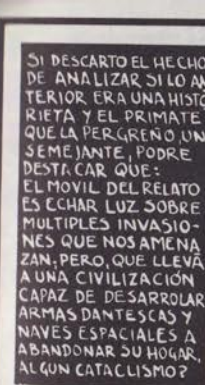 SI DESCARTO EL HECHO
DE ANALIZAR SI LO AN
TERIOR ERA UNA HISTO
RIETA Y EL PRIMATE
QUE LA PERGREÑO, UN
SEMEJANTE, PODRE
DESTACAR QUE:
EL MOVIL DEL RELATO
ES ECHAR LUZ SOBRE
MULTIPLES INVASIO-
NES QUE NOS AMENA
ZAN; PERO, QUE LLEVA
A UNA CIVILIZACIÓN
CAPAZ DE DESARROLAR
ARMAS DANTESCAS Y
NAVES ESPACIALES A
ABANDONAR SU HOGAR,
ALGUN CATACLISMO?